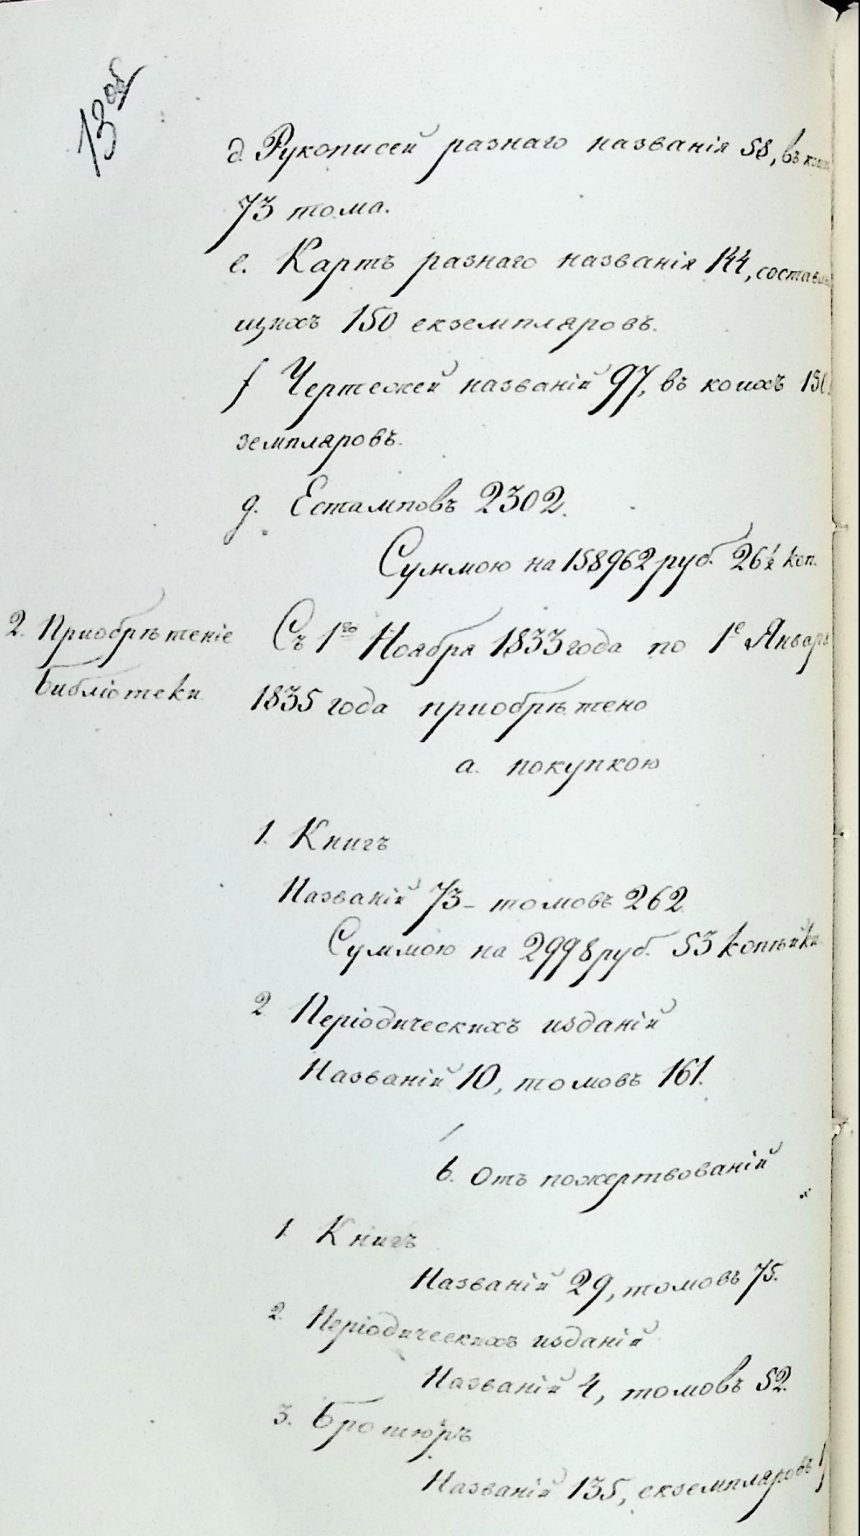 13об
д. Рукописей разнаго названія 58, въ
73 тома.
е. Картъ разнаго названія 144, составля
щихъ 150 екземпляровъ.
f Чертежей названій 97, въ коихъ 150
земпляровъ.
g. Естамповъ 2302.
Суммою на 158962 руб. 26½ коп.
2. Приобрѣтеніе
Библіотеки
Съ 1го Ноября 1833 года по 1е Январь
1835 года приобрѣтено
а. покупкою
1. Книгъ
Названій 73 – томовъ 262
Суммою на 2998 руб. 53 копѣйки
2 Періодическихъ изданій
Названій 10, томовъ 161.
b. Отъ пожертвованій
1 Книгъ
Названій 29, томовъ 75.
2. Періодическихъ изданій
Названій 4, томовъ 52.
3. Брошюръ
Названій 135, екземпляровъ